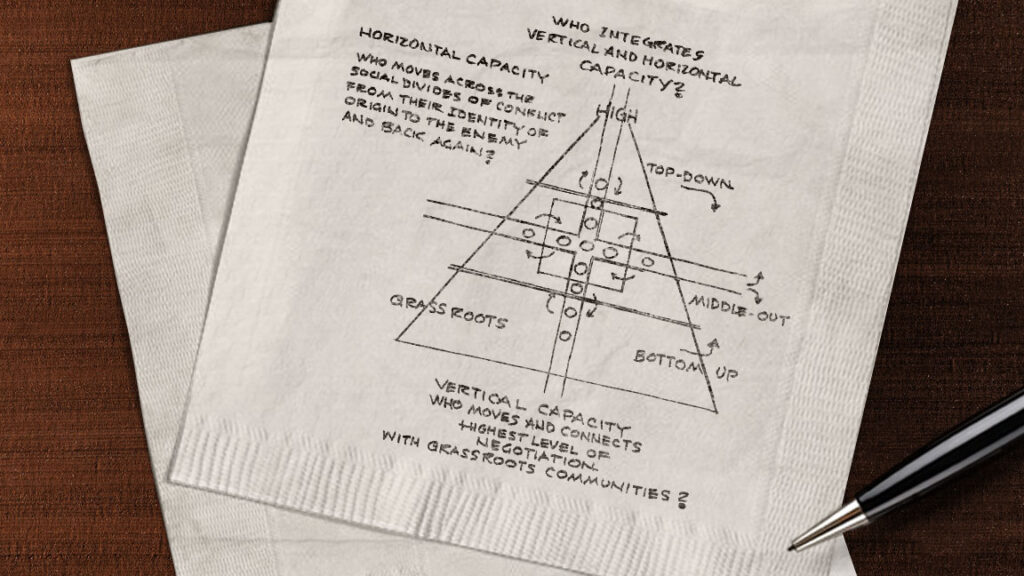 WHO INTEGRATES
VERTICAL AND HORIZONTAL
CAPACITY?
HORIZONTAL CAPACITY
WHO MOVES ACROSS THE
SOCIAL DIVIDES OF CONFLICT
FROM THEIR IDENTITY OF
ORIGIN TO THE ENEMY
AND BACK AGAIN?
HIGH
TOP-DOWN
MIDDLE-OUT
GRASSROOTS
BOTTOM UP
VERTICAL CAPACITY
WHO MOVES AND CONNECTS
HIGHEST LEVEL OF
NEGOTIATION
WITH GRASSROOTS COMMUNITIES?